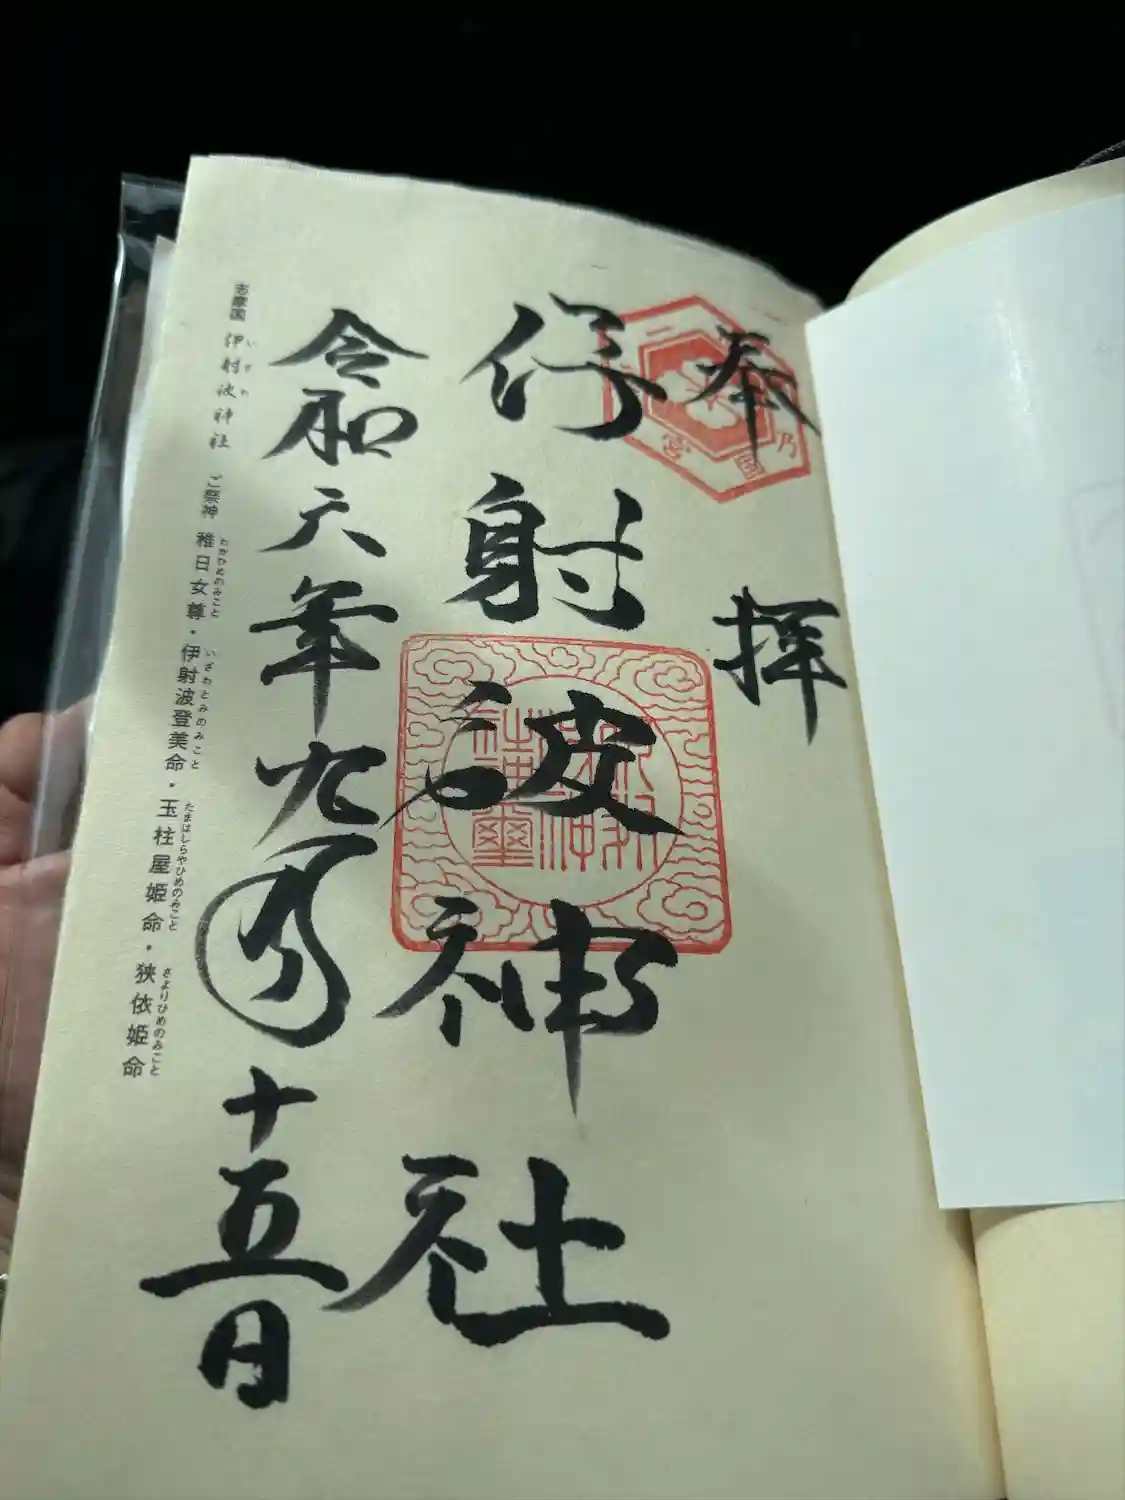 奉拝
伊射波神社
令和六年九月十五日
志摩国 伊射波神社 ご祭神 稚日女尊・伊射波登美命・玉柱屋姫命・狭依姫命
いざわ
わかひめのみこと
いざわとみのみこと
たまはしらやひめのみこと
さよりひめのみこと